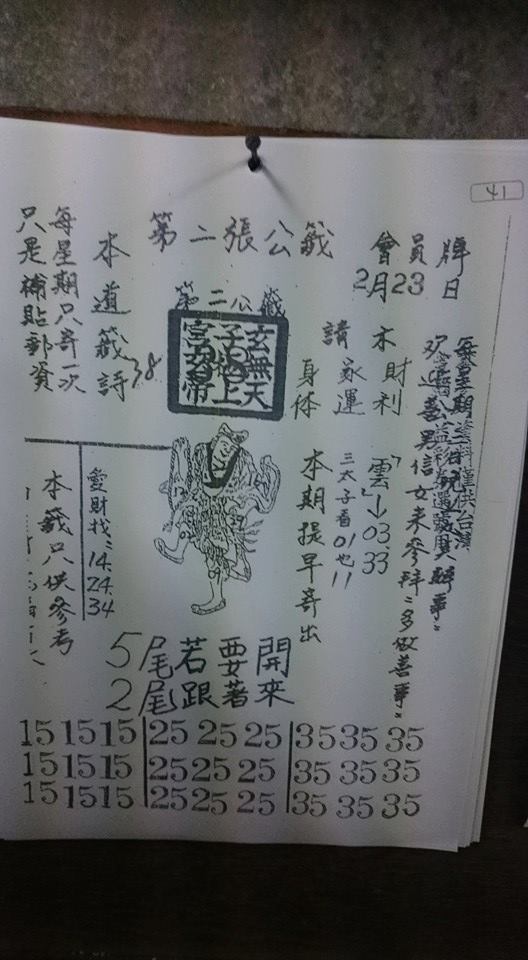 41
第二張公籤
會員牌
2月23日
每星期
僅供台灣
歡迎善男信女來參拜多做善事
財利
木
雲→03.33
請家運
身体
三太子看01也11
本期提早寄出
第二公籤
玄無天
子上
宮帝
本道籤詩
38
每星期只寄一次
只是補貼郵資
愛財找:14.24.34
本籤只供參考
5尾若要開
2尾跟著來
15 15 15 25 25 25 35 35 35
15 15 15 25 25 25 35 35 35
15 15 15 25 25 25 35 35 35